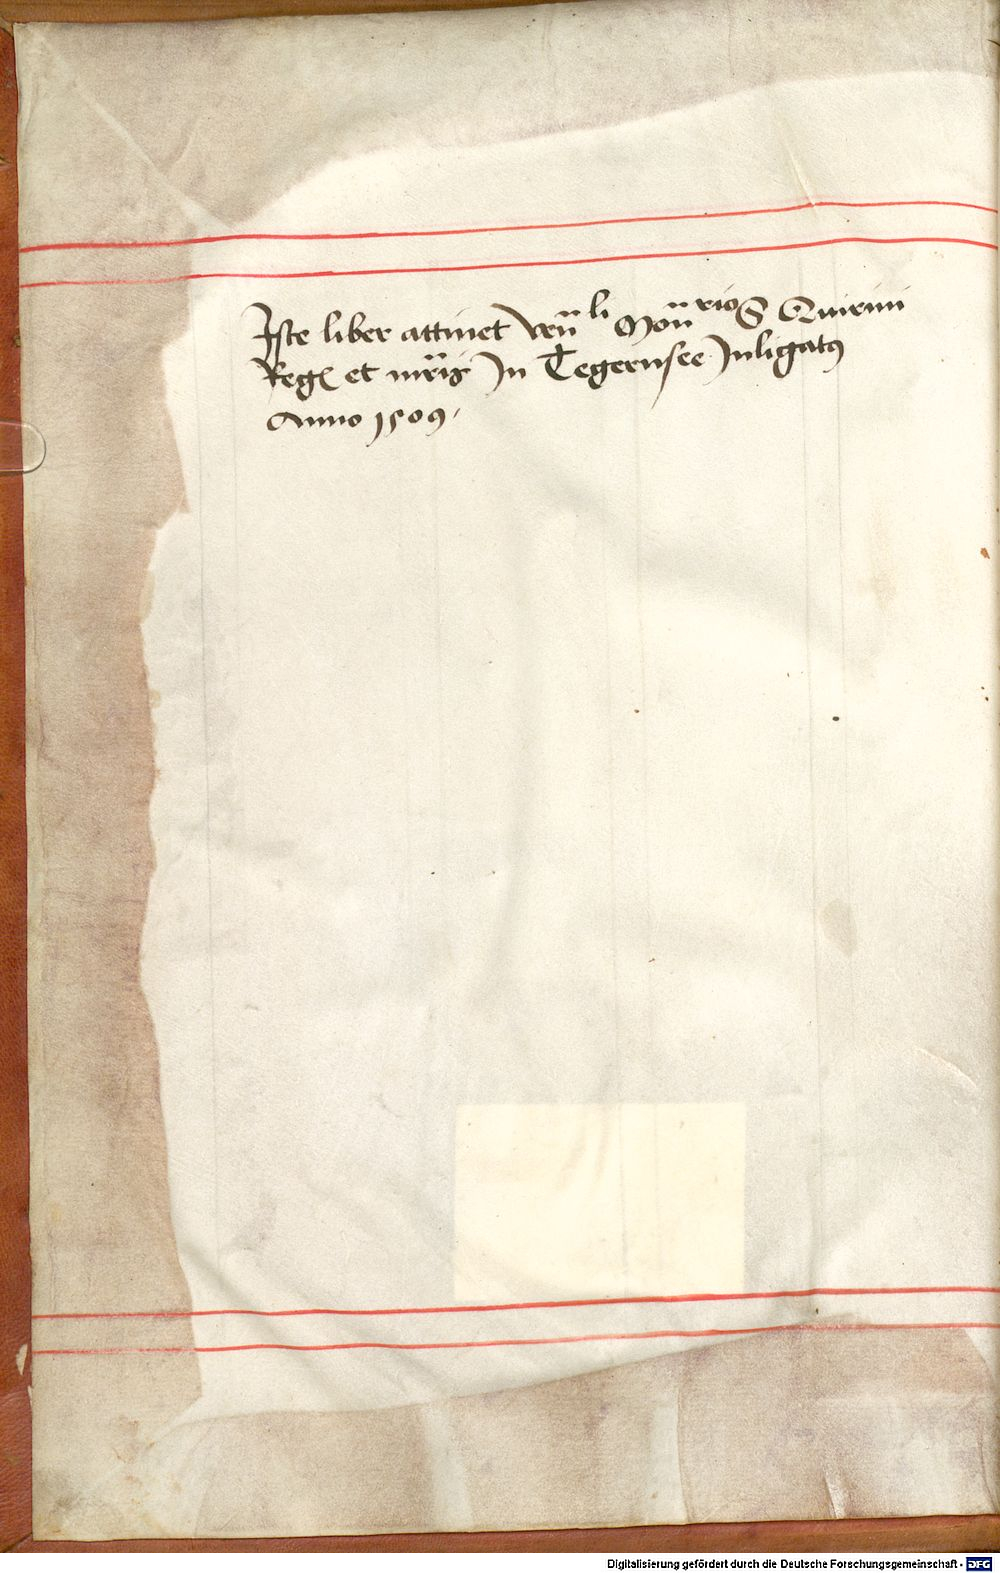 Iste liber attinet Ven̄li Mon̄rio S Quirini
Regʒ et mr̄is In Tegernsee Inligatꝰ
Anno 1509.
Digitalisierung gefördert durch die Deutsche Forschungsgemeinschaft - DFG